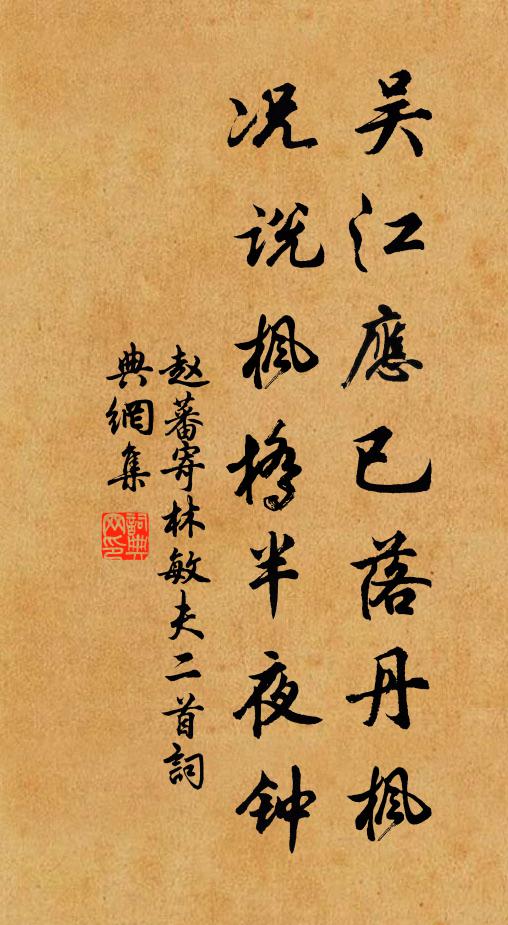 吴江應已落丹枫
况说枫橋半夜钟
赵蕃寄林敏夫二首詞
典網集
詞典
网印